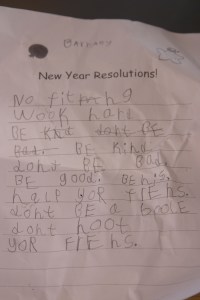 Bethany
New Year Resolutions!
No fitmh9
Wook hard
BE Kind dont BE
Bad. BE Kind
dont BE Bad
BE good. BE his.
half YOR FIE hs.
dont BE a
dont hoot
YOR FIE hs.